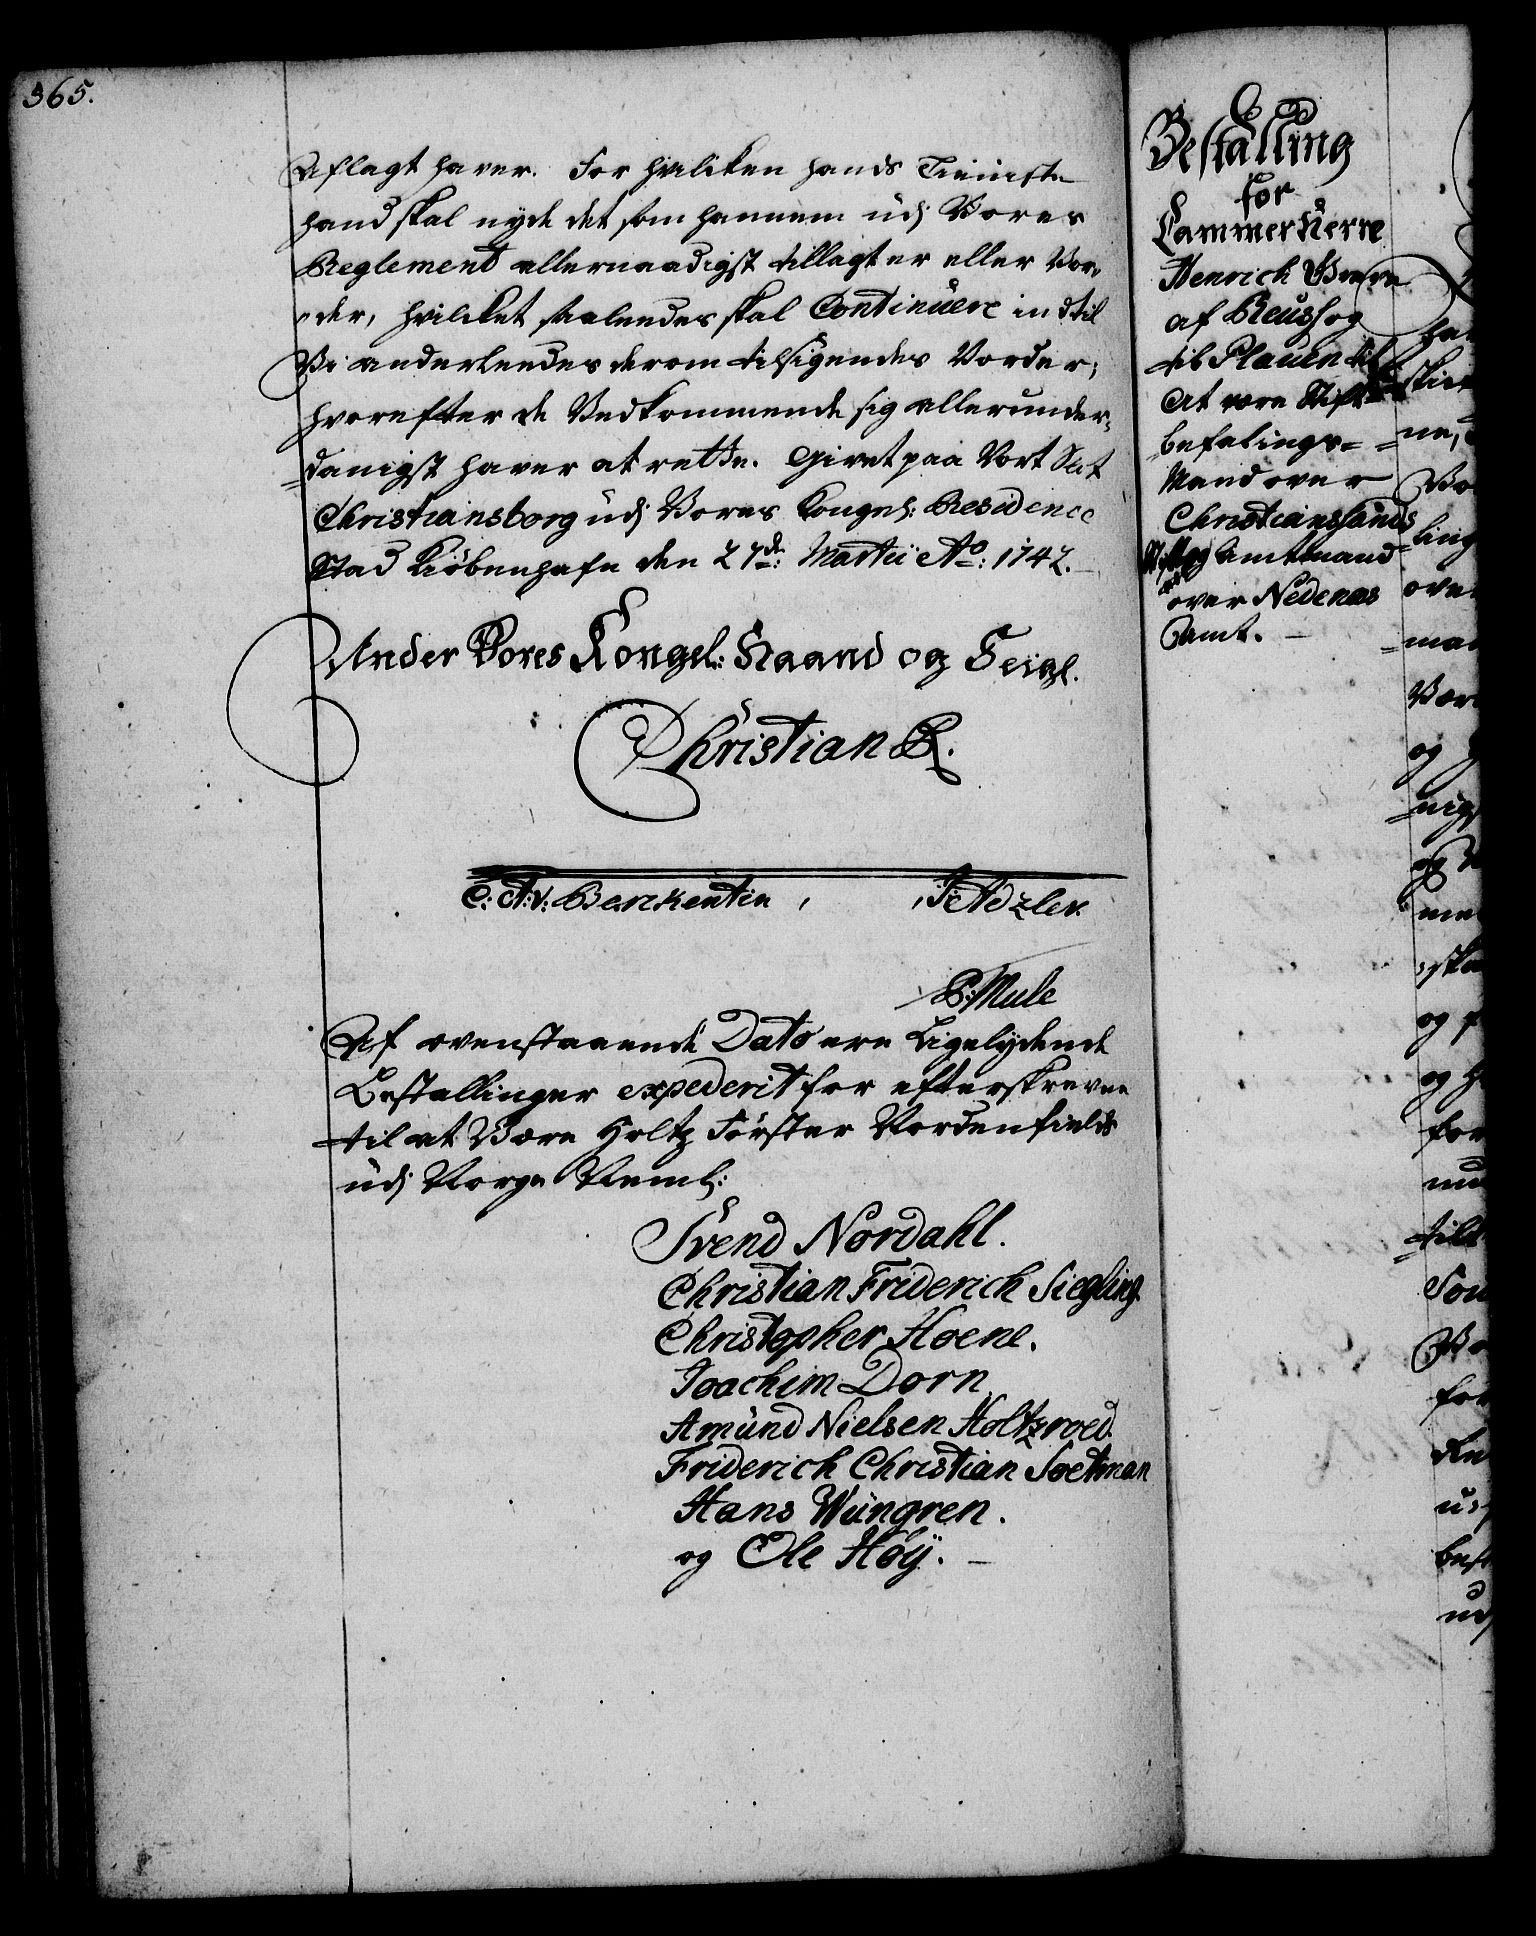 365.
Aflagt haver. For hvilcken hands Tieniste
hand skal nyde det som hannem udj Vores
Reglement allernaadigst tillagt er eller Vor-
der, hvilcket saaledes skal Continuere indtil
Vi anderleedes derom tilsigendes Vorder;
hvorefter de Vedkommende sig allerunder-
danigst haver at rette. Givet paa Vort Slot
Christiansborg udj Vores Kongel: Residence
Stad Kiøbenhafn den 27de: Martii Ao: 1742.
Under Vores Kongel: Haand og Seigl.
Christian R.
C: A: v: Berckentin, J: Adzler.
P: Mule
Af ovenstaaende Dato ere Ligelydende
Bestallinger expederit for efterskrevne
til at Være Holtz Förster Nordenfields
udj Norge Neml:
Svend Nordahl.
Christian Friderich Siegling.
Christopher Hoene.
Joachim Dorn
Amund Nielsen Holtzroed.
Friderich Christian Soetman
Hans Wüngren.
og Ole Høÿ.
Bestalling
for
CammerHerre
Henrich Greve
af Reuss og
til Plauen til
At være Stift
befalings-
Mand over
Christianssands
Stift og Amtmand
over Nedenæs
Amt.
ne,
ling
over
man
Vær
og
nigs
og
og
og
for
til
for
udj